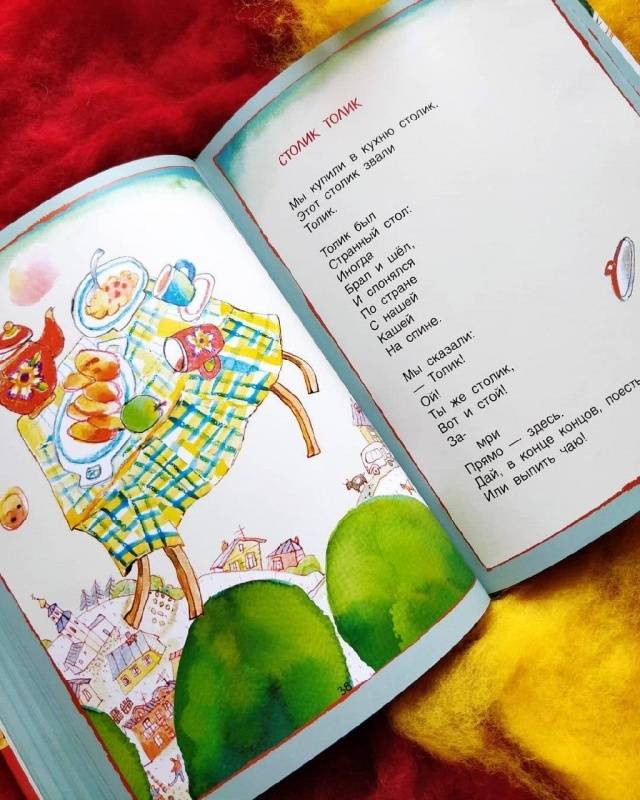 СТОЛИК ТОЛИК
Мы купили в кухню столик.
Этот столик звали
Толик.
Толик был
Странный стол:
Иногда
Брал и шёл,
И слонялся
По стране
С нашей
Кашей
На спине.
Мы сказали:
— Толик!
Ой!
Ты же столик,
Вот и стой!
За-
мри
Прямо — здесь.
Дай, в конце концов, поесть
Или выпить чаю!
38